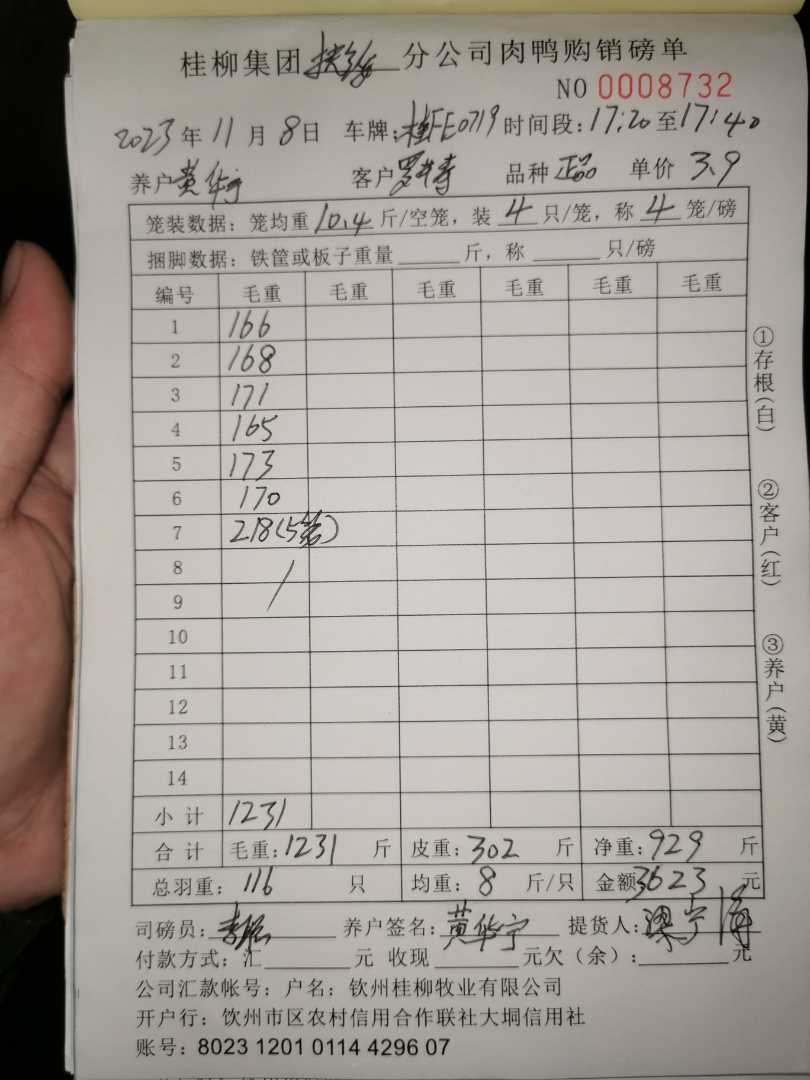 桂柳集团 分公司肉鸭购销磅单
NO 0008732
2023年11月8日 车牌:桂FE0719 时间段:17:20至17:40
养户黄华宁 客户罗 品种正品 单价3.9
笼装数据:笼均重10.4斤/空笼,装4只/笼,称4笼/磅
捆脚数据:铁筐或板子重量______斤,称______只/磅
编号 毛重 毛重 毛重 毛重 毛重 毛重
1 166
2 168
3 171
4 165
5 173
6 170
7 218(5笼)
8 /
9
10
11
12
13
14
小计 1231
合计 毛重:1231斤 皮重:302斤 净重:929斤
总羽重:116只 均重:8斤/只 金额3623元
司磅员:李 养户签名:黄华宁 提货人:梁宁海
付款方式:汇______元 收现______元欠(余):______元
公司汇款帐号:户名:钦州桂柳牧业有限公司
开户行:饮州市区农村信用合作联社大垌信用社
账号:8023 1201 0114 4296 07
①存根(白)
②客户(红)
③养户(黄)